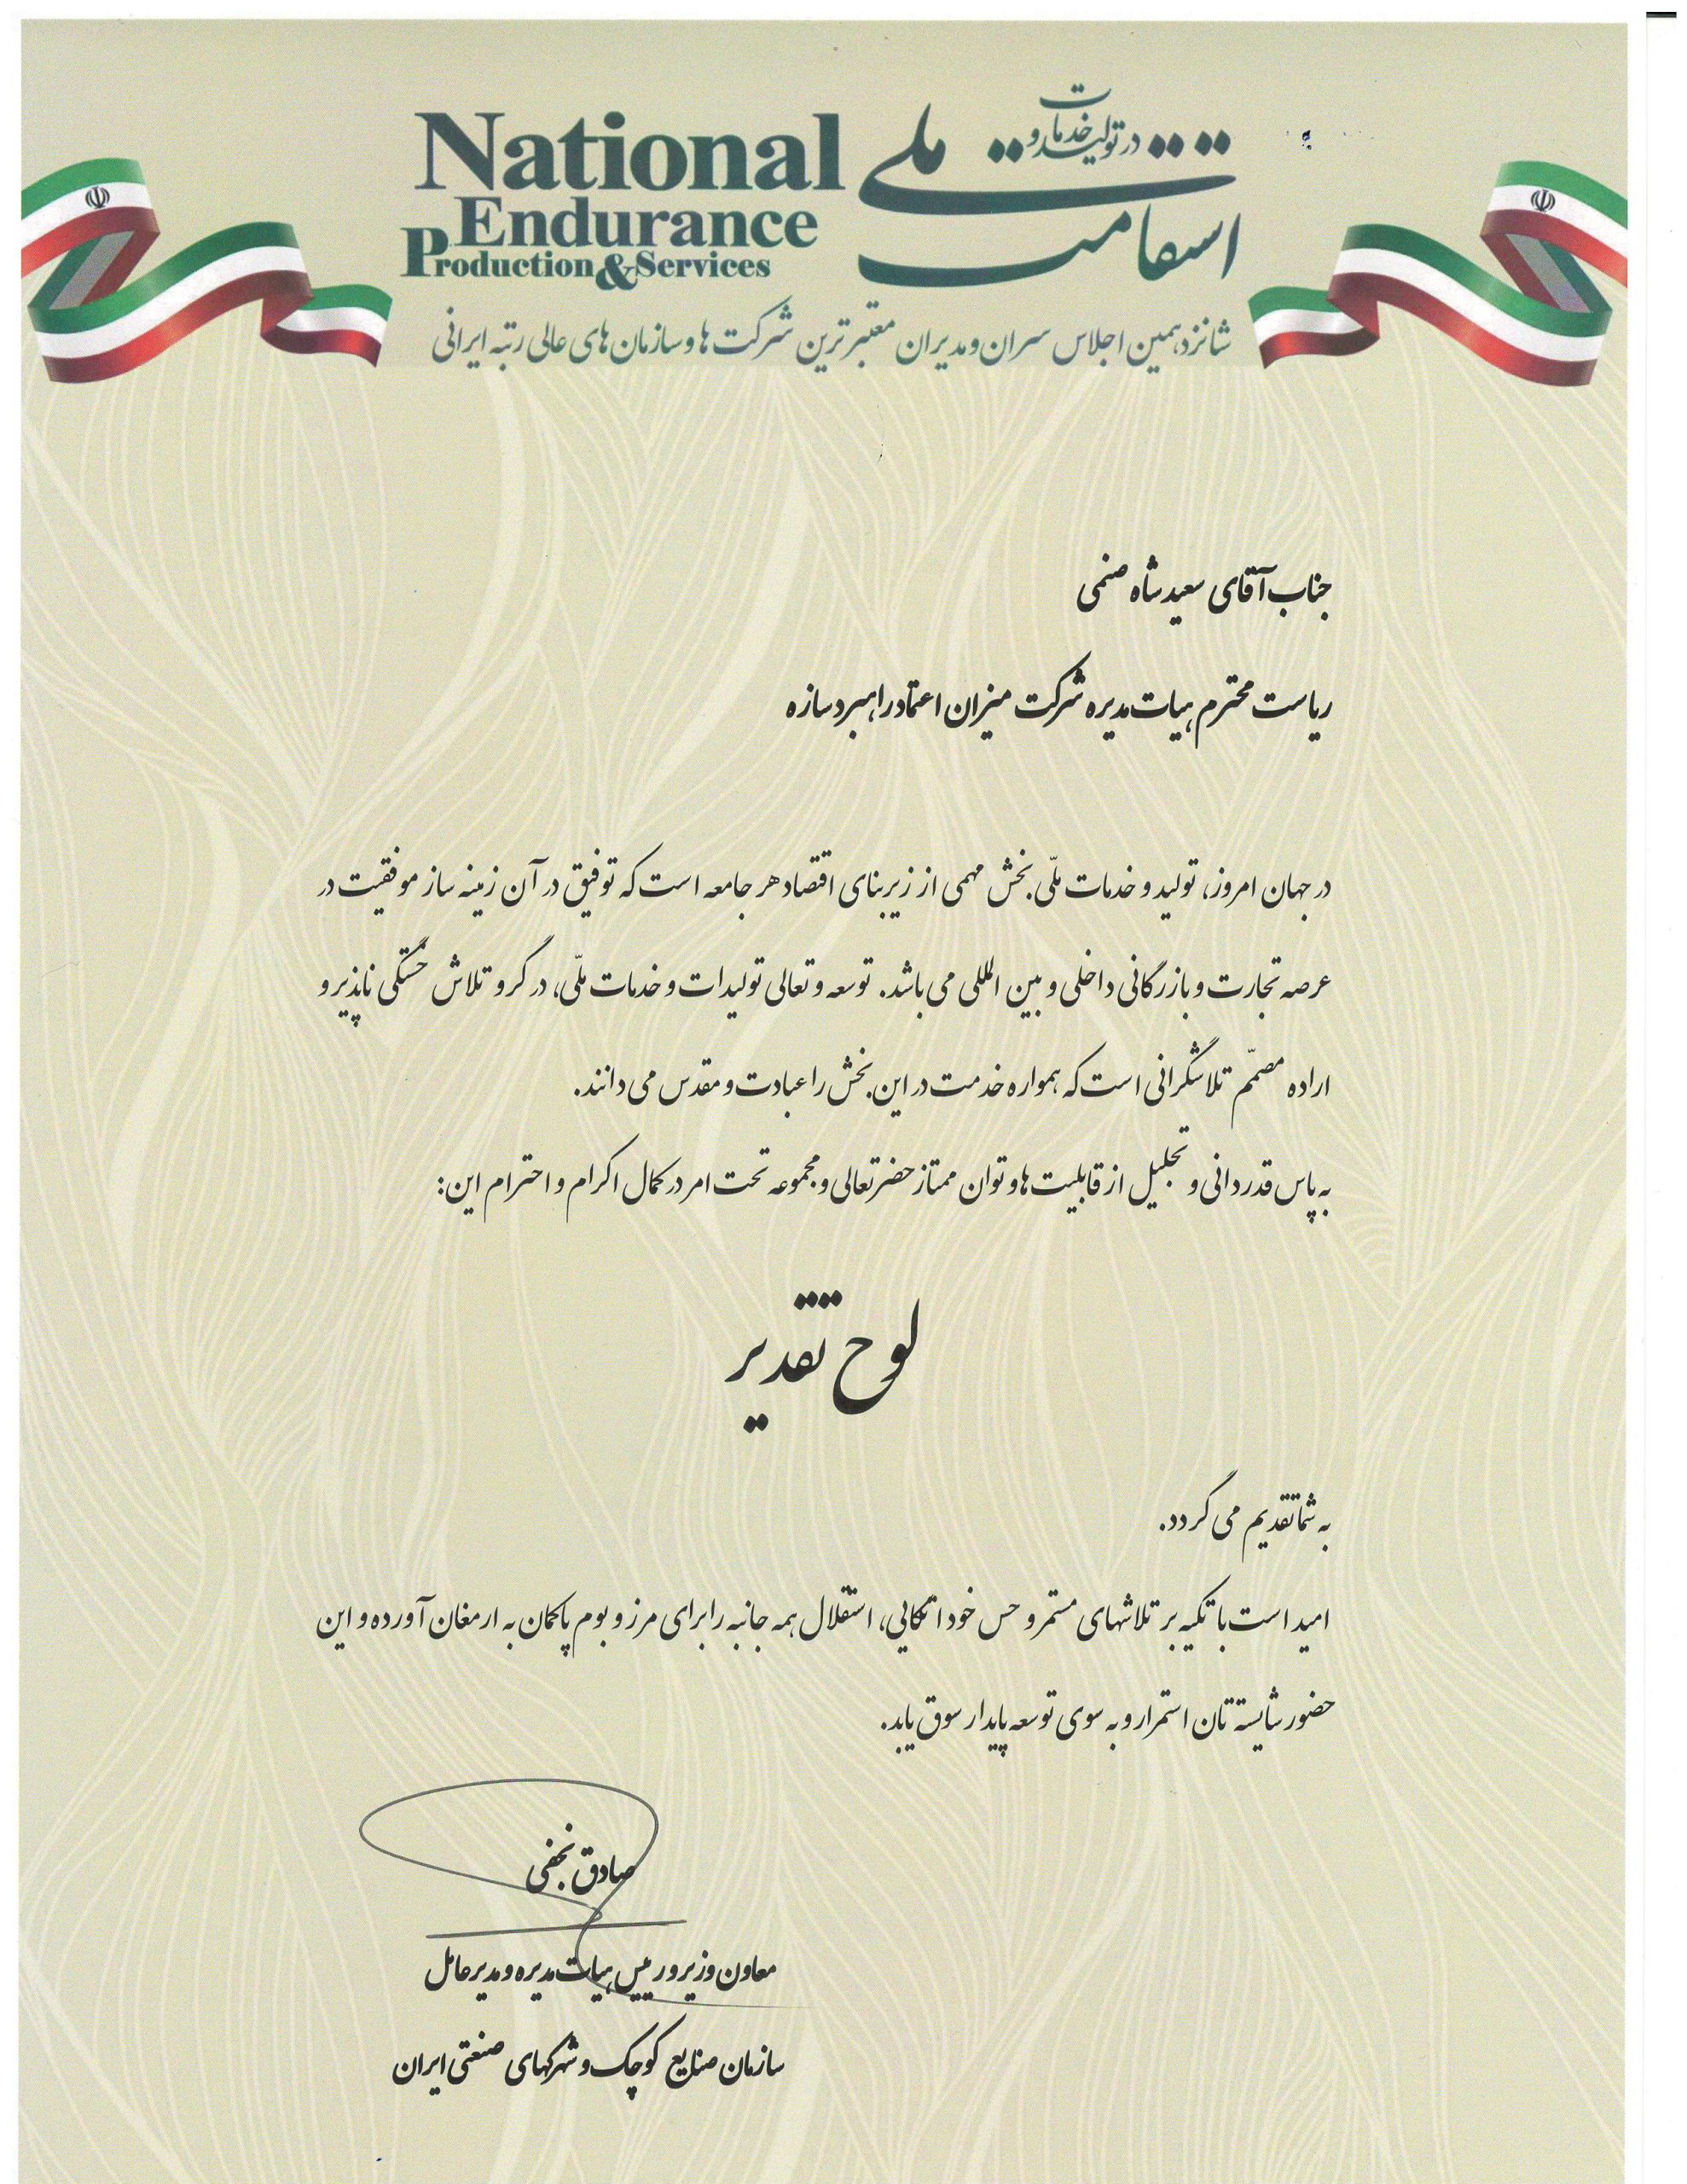 National
Endurance
Production & Services
استقامت ملی
در تولید و خدمات
شانزدهمین اجلاس سران و مدیران معتبرترین شرکت ها و سازمان های عالی رتبه ایرانی
جناب آقای سعید شاه صنمی
ریاست محترم هیات مدیره شرکت میزان اعتماد راهبرد سازه
در جهان امروز، تولید و خدمات ملّی بخش مهمی از زیربنای اقتصاد هر جامعه است که توفیق در آن زمینه ساز موفقیت در
عرصه تجارت و بازرگانی داخلی و بین المللی می باشد. توسعه و تعالی تولیدات و خدمات ملّی، در گرو تلاش خستگی ناپذیر و
اراده مصمّم تلاشگرانی است که همواره خدمت در این بخش را عبادت و مقدس می دانند.
به پاس قدردانی و تجلیل از قابلیت ها و توان ممتاز حضرتعالی و مجموعه تحت امر در کمال اکرام و احترام این:
لوح تقدیر
به شما تقدیم می گردد.
امید است با تکیه بر تلاشهای مستمر و حس خود اتکایی، استقلال همه جانبه را برای مرز و بوم پاکمان به ارمغان آورده و این
حضور شایسته تان استمرار و به سوی توسعه پایدار سوق یابد.
صادق نجفی
معاون وزیر و رییس هیات مدیره و مدیرعامل
سازمان صنایع کوچک و شهرکهای صنعتی ایران